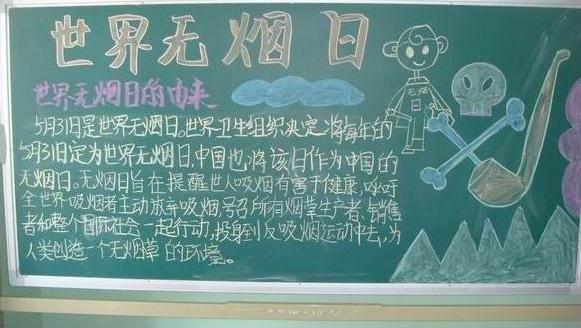 世界无烟日
世界无烟日的由来
5月31日是世界无烟日。世界卫生组织决定将每年的
5月31日定为世界无烟日,中国也将该日作为中国的
无烟日。无烟日旨在提醒世人吸烟有害于健康,呼吁
全世界吸烟者主动放弃吸烟,号召所有烟草生产者、销售
者和整个国际社会一起行动,投身到反吸烟运动中去,为
人类创造一个无烟草的环境。
无烟